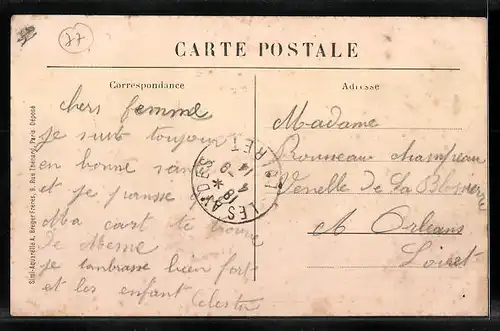 77
CARTE POSTALE
Correspondance
Adresse
chers femme
je suit toujour
en bonne san
et je pansse
Ma cart te trouve
de Meme
je tanbrasse bien fort
et les enfant Celestin
Madame
Rousseau champeau
Venelle de La
A Orleans
Loiret
LES AYDES
LOIRET
Simi-Aquarelle A. Breger Frères, 9, Rue Thénard, Paris. Déposé